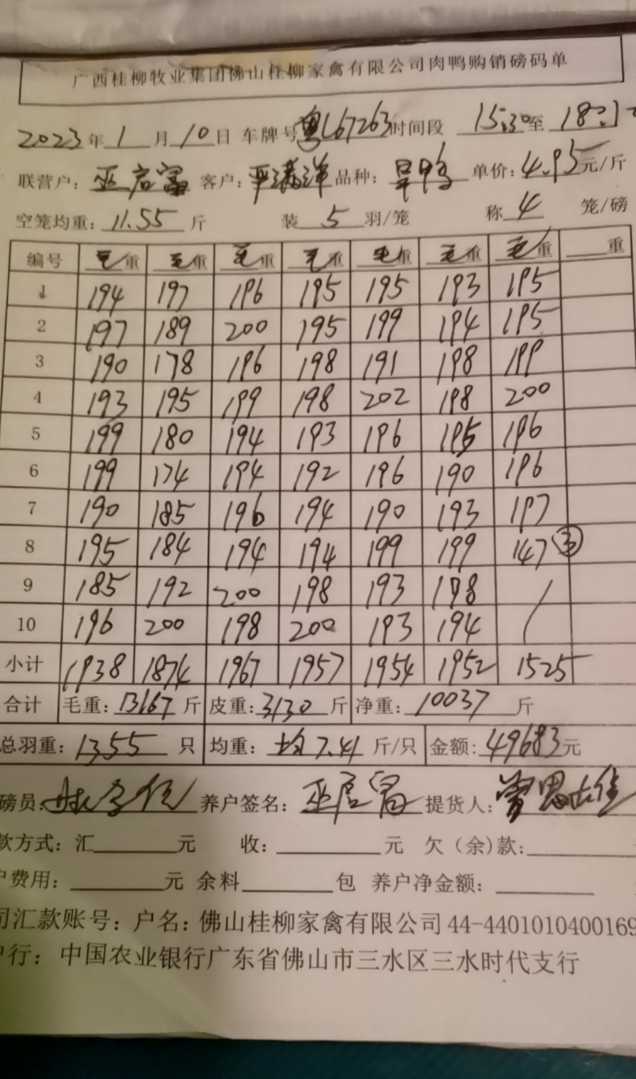 广西桂柳牧业集团佛山桂柳家禽有限公司肉鸭购销磅码单
2023年1月10日 车牌号粤L67263时间段 15:30至 18:1
联营户: 巫启富 客户: 严满洋 品种: 旱鸭 单价: 4.95元/斤
空笼均重: 11.55 斤 装 5 羽/笼 称 4 笼/磅
编号 毛重 毛重 毛重 毛重 毛重 毛重 毛重 重
1 194 197 196 195 195 193 195
2 197 189 200 195 199 194 195
3 190 178 196 198 191 198 199
4 193 195 199 198 202 198 200
5 199 180 194 193 196 195 196
6 199 174 194 192 196 190 196
7 190 185 196 194 190 193 197
8 195 184 194 194 199 199 147 ③
9 185 192 200 198 193 198 /
10 196 200 198 200 193 194
小计 1938 1874 1967 1957 1954 1952 1525
合计 毛重: 13167 斤 皮重: 3130 斤 净重: 10037 斤
总羽重: 1355 只 均重: 均7.41 斤/只 金额: 49683元
磅员: 养户签名: 巫启富 提货人:
款方式: 汇 元 收: 元 欠(余)款:
户费用: 元 余料 包 养户净金额:
司汇款账号: 户名: 佛山桂柳家禽有限公司 44-4401010400169
户行: 中国农业银行广东省佛山市三水区三水时代支行